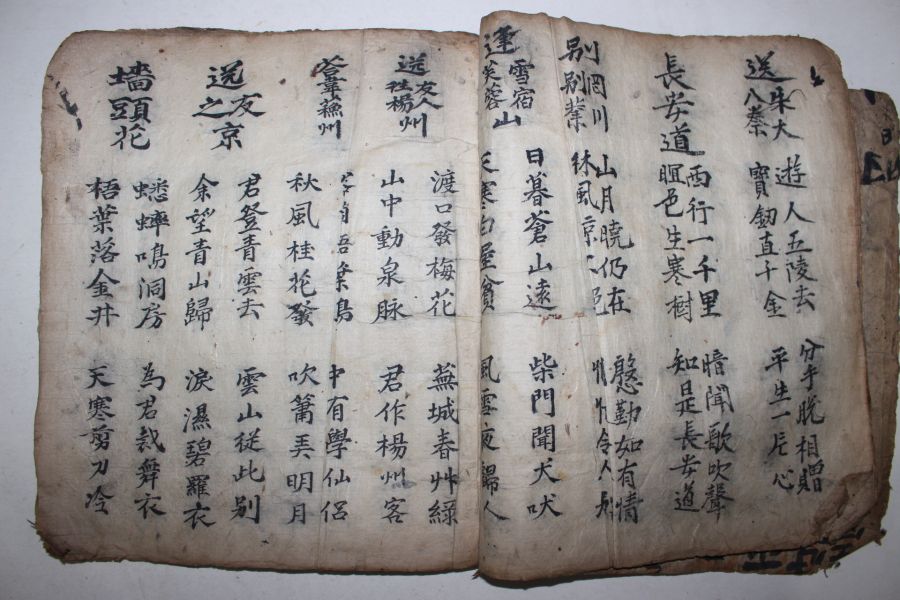 送朱大入秦
遊人五陵去
寶釰直千金
分手脫相贈
平生一片心
長安道
西行一千里
暝色生寒樹
暗聞歌吹聲
知是長安道
別罔川別業
山月曉仍在
林風凉
慇勤如有情
令人別
逢雪宿芙蓉山
日暮蒼山遠
天寒白屋貧
柴門聞犬吠
風雪夜歸人
送友人往楊州
渡口發梅花
山中動泉脉
蕪城春艸綠
君作楊州客
答韋蘓州
秋風桂花發
中有學仙侶
吹簫弄明月
送友之京
君登青雲去
余望青山歸
雲山從此別
淚濕碧羅衣
墻頭花
蟋蟀鳴洞房
梧葉落金井
為君裁舞衣
天寒剪刀冷